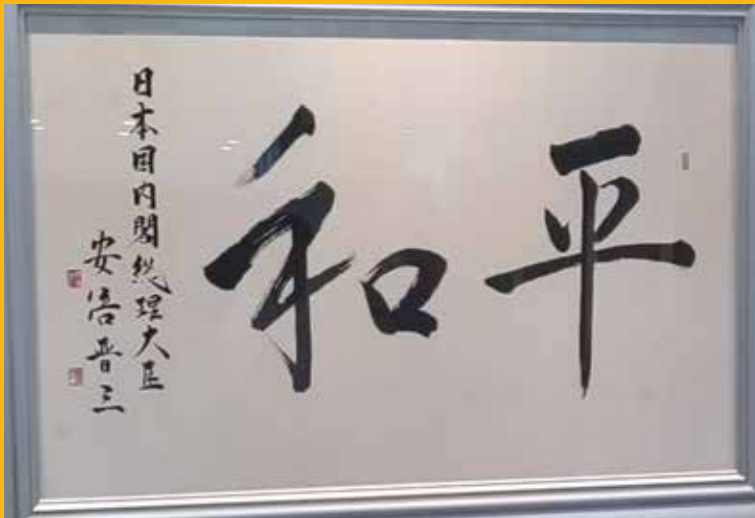 平和
日本国内閣総理大臣
安倍晋三